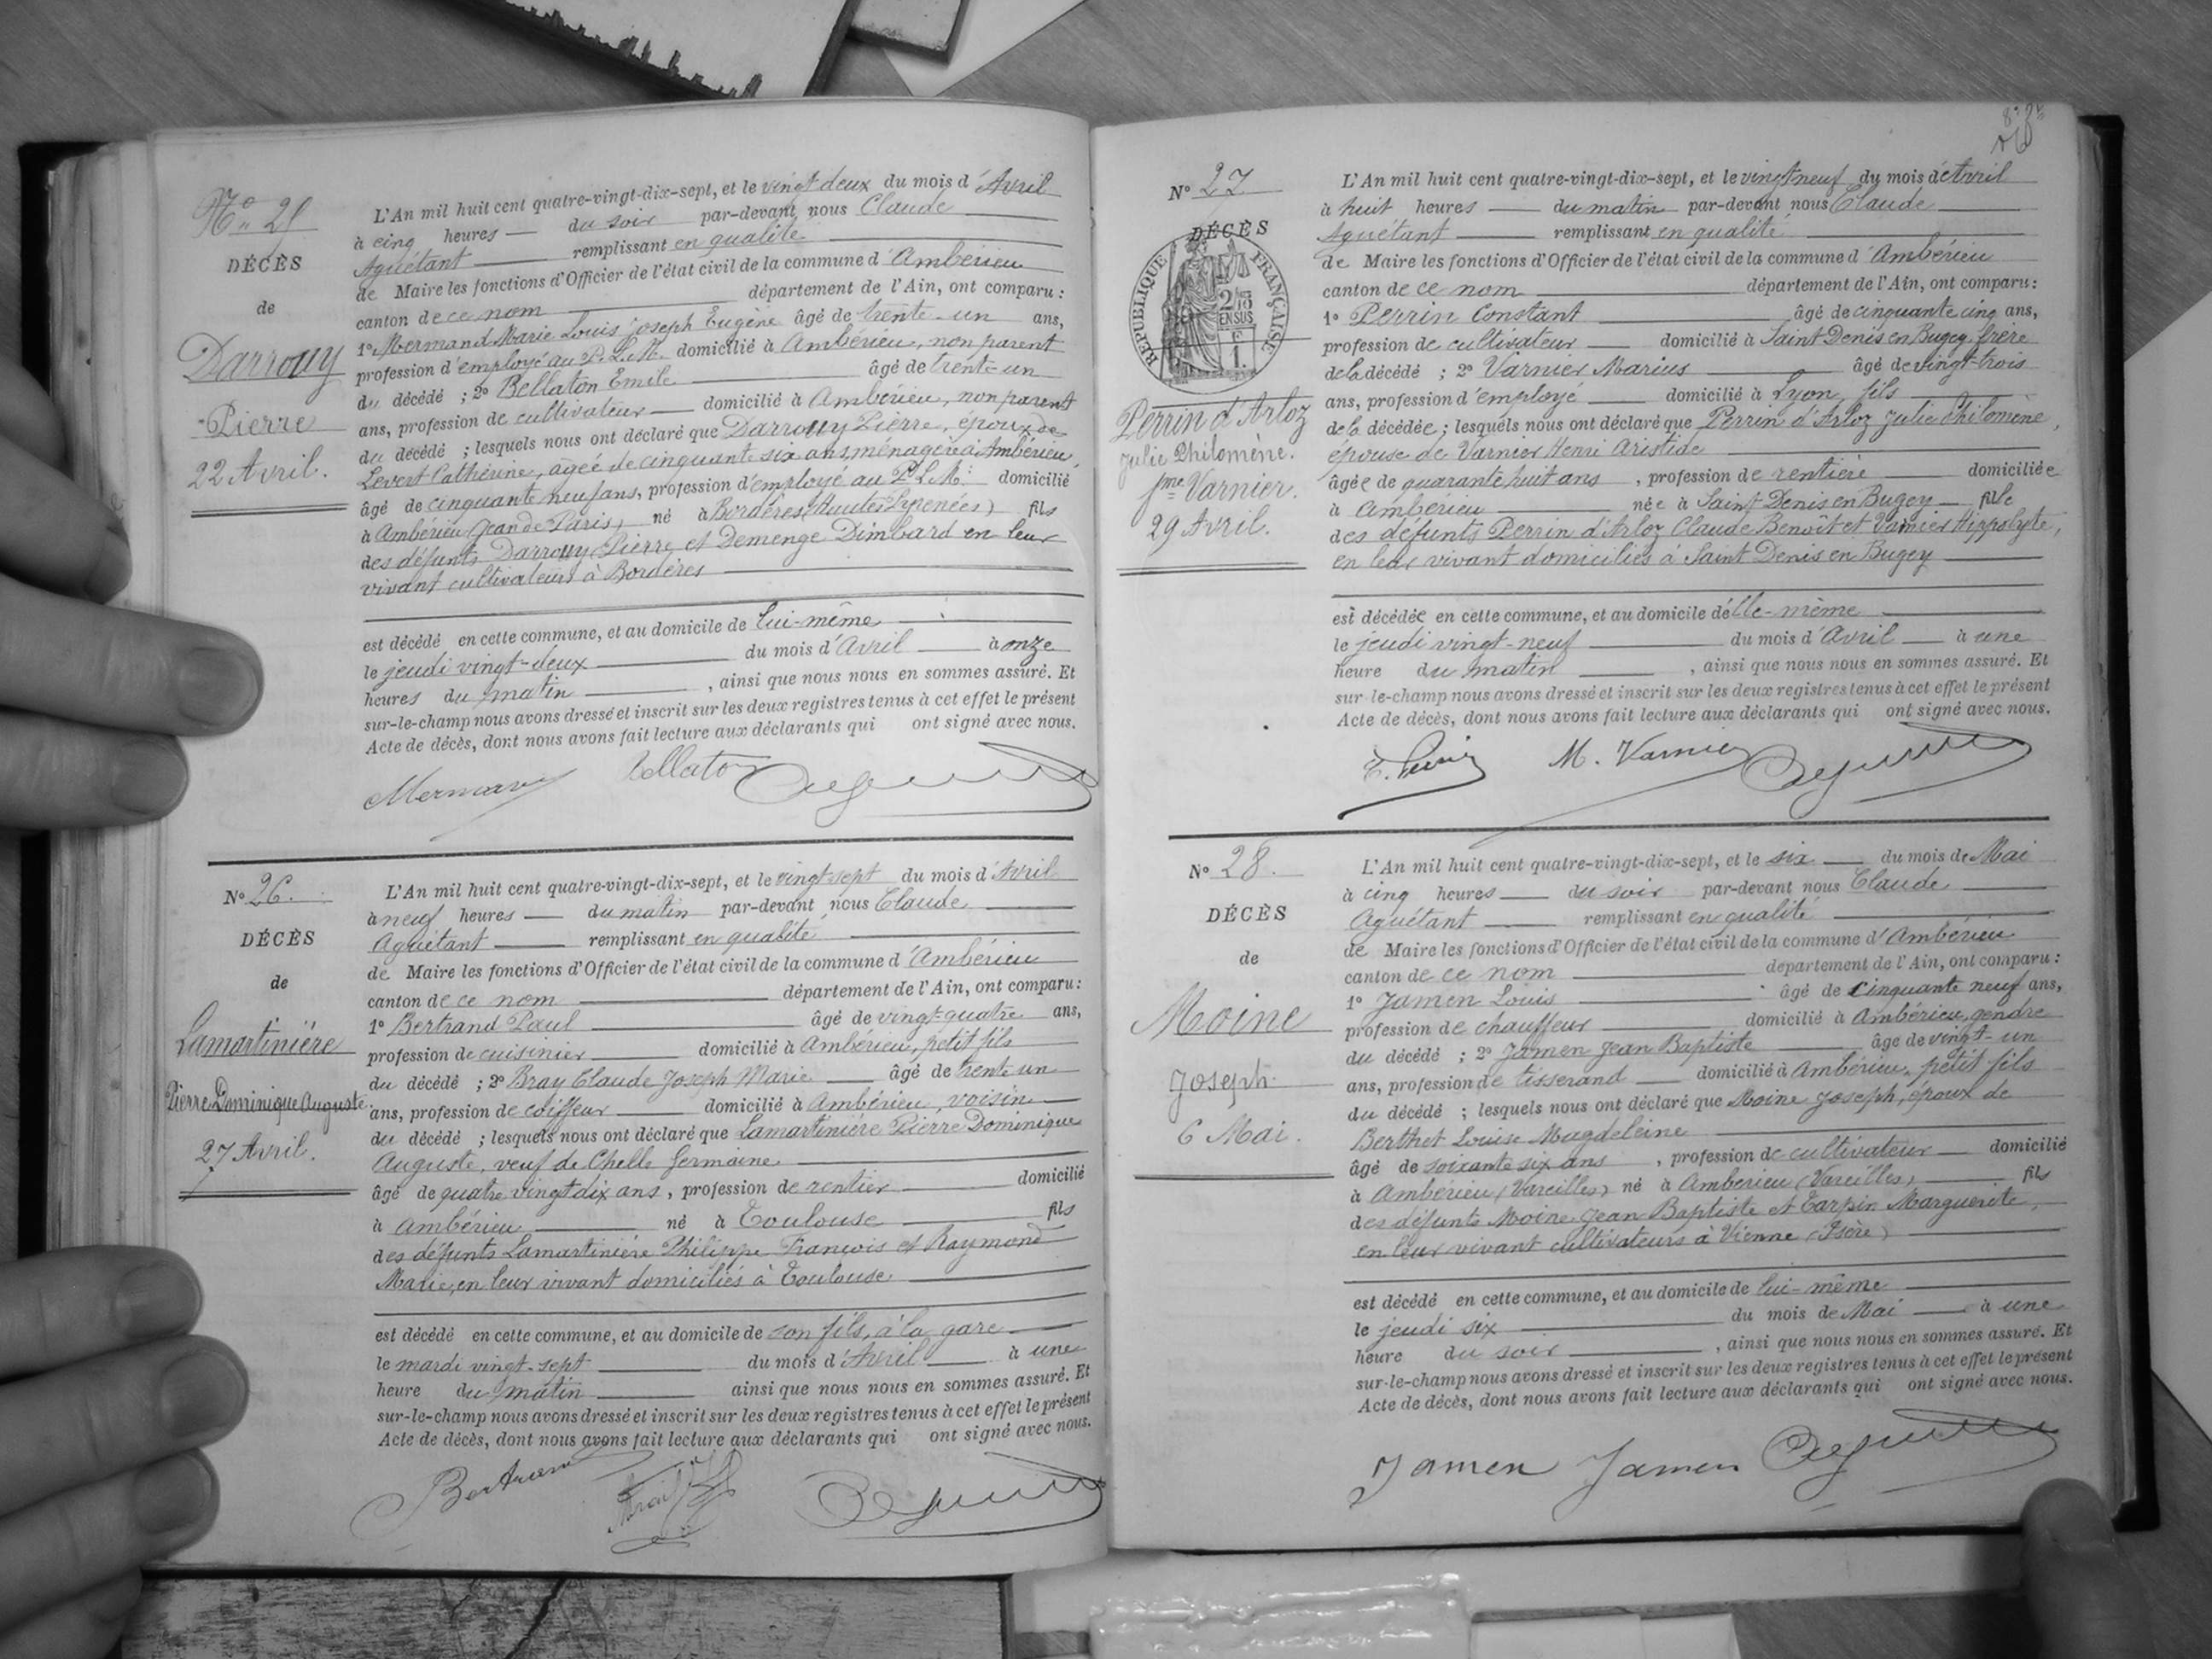 N° 25
DÉCÈS
de
Darrouy
Pierre
22 Avril.
L'An mil huit cent quatre-vingt-dix-sept, et le vingt deux du mois d'Avril
à cinq heures du soir par-devant nous Claude
Aguétant remplissant en qualité
de Maire les fonctions d'Officier de l'état civil de la commune d'Ambérieu
canton de ce nom département de l'Ain, ont comparu :
1° Mermand Marie Louis Joseph Eugène âgé de trente-un ans,
profession d'employé au P.L.M. domicilié à Ambérieu, non parent
du décédé ; 2° Bellaton Emile âgé de trente-un
ans, profession de cultivateur domicilié à Ambérieu, non parent
du décédé ; lesquels nous ont déclaré que Darrouy Pierre, époux de
Levert Catherine, âgée de cinquante six ans, ménagère à Ambérieu,
âgé de cinquante neuf ans, profession d'employé au P.L.M. domicilié
à Ambérieu (Jean de Paris) né à Bordères (Hautes Pyrenées) fils
des défunts Darrouy Pierre et Demenge Dimbard en leur
vivant cultivateurs à Bordères
est décédé en cette commune, et au domicile de lui-même
le jeudi vingt-deux du mois d'Avril à onze
heures du matin , ainsi que nous nous en sommes assuré. Et
sur-le-champ nous avons dressé et inscrit sur les deux registres tenus à cet effet le présent
Acte de décès, dont nous avons fait lecture aux déclarants qui ont signé avec nous.
Mermand Bellaton
N° 26.
DÉCÈS
de
Lamartinière
Pierre Dominique Auguste
27 Avril.
L'An mil huit cent quatre-vingt-dix-sept, et le vingt-sept du mois d'Avril
à neuf heures du matin par-devant nous Claude
Aguétant remplissant en qualité
de Maire les fonctions d'Officier de l'état civil de la commune d'Ambérieu
canton de ce nom département de l'Ain, ont comparu :
1° Bertrand Paul âgé de vingt-quatre ans,
profession de cuisinier domicilié à Ambérieu, petit fils
du décédé ; 2° Bray Claude Joseph Marie âgé de trente un
ans, profession de coiffeur domicilié à Ambérieu, voisin
du décédé ; lesquels nous ont déclaré que Lamartinière Pierre Dominique
Auguste, veuf de Chelle Germaine
âgé de quatre vingt dix ans, profession de rentier domicilié
à Ambérieu né à Toulouse fils
des défunts Lamartinière Philippe François et Raymond
Marie, en leur vivant domiciliés à Toulouse
est décédé en cette commune, et au domicile de son fils, à la gare
le mardi vingt-sept du mois d'Avril à une
heure du matin ainsi que nous nous en sommes assuré. Et
sur-le-champ nous avons dressé et inscrit sur les deux registres tenus à cet effet le présent
Acte de décès, dont nous avons fait lecture aux déclarants qui ont signé avec nous.
Bertrand
N° 27
DÉCÈS
REPUBLIQUE FRANÇAISE
2/10
EN SUS
F
1.
Perrin d'Arloz
Julie Philomène.
fme Varnier.
29 Avril.
L'An mil huit cent quatre-vingt-dix-sept, et le vingt neuf du mois d'Avril
à huit heures du matin par-devant nous Claude
Aguétant remplissant en qualité
de Maire les fonctions d'Officier de l'état civil de la commune d'Ambérieu
canton de ce nom département de l'Ain, ont comparu :
1° Perrin Constant âgé de cinquante cinq ans,
profession de cultivateur domicilié à Saint Denis en Bugey, frère
de la décédé ; 2° Varnier Marius âgé de vingt-trois
ans, profession d'employé domicilié à Lyon, fils
de la décédée ; lesquels nous ont déclaré que Perrin d'Arloz Julie Philomène,
épouse de Varnier Henri Aristide
âgée de quarante huit ans , profession de rentière domiciliée
à Ambérieu née à Saint Denis en Bugey fille
des défunts Perrin d'Arloz Claude Benoit et Varnier Hippolyte,
en leur vivant domiciliés à Saint Denis en Bugey
est décédée en cette commune, et au domicile d'elle-même
le jeudi vingt-neuf du mois d'Avril à une
heure du matin , ainsi que nous nous en sommes assuré. Et
sur-le-champ nous avons dressé et inscrit sur les deux registres tenus à cet effet le présent
Acte de décès, dont nous avons fait lecture aux déclarants qui ont signé avec nous.
M. Varnier
N° 28.
DÉCÈS
de
Moine
Joseph
6 Mai.
L'An mil huit cent quatre-vingt-dix-sept, et le six du mois de Mai
à cinq heures du soir par-devant nous Claude
Aguétant remplissant en qualité
de Maire les fonctions d'Officier de l'état civil de la commune d'Ambérieu
canton de ce nom département de l'Ain, ont comparu :
1° Jamen Louis âgé de cinquante neuf ans,
profession de chauffeur domicilié à Ambérieu, gendre
du décédé ; 2° Jamen Jean Baptiste âgé de vingt-un
ans, profession de tisserand domicilié à Ambérieu, petit fils
du décédé ; lesquels nous ont déclaré que Moine Joseph, époux de
Berthet Louise Magdeleine
âgé de soixante six ans , profession de cultivateur domicilié
à Ambérieu (Vareilles) né à Ambérieu (Vareilles) fils
des défunts Moine Jean Baptiste et Tarpin Marguerite,
en leur vivant cultivateurs à Vienne (Isère)
est décédé en cette commune, et au domicile de lui-même
le jeudi six du mois de Mai à une
heure du soir , ainsi que nous nous en sommes assuré. Et
sur-le-champ nous avons dressé et inscrit sur les deux registres tenus à cet effet le présent
Acte de décès, dont nous avons fait lecture aux déclarants qui ont signé avec nous.
Jamen Jamen